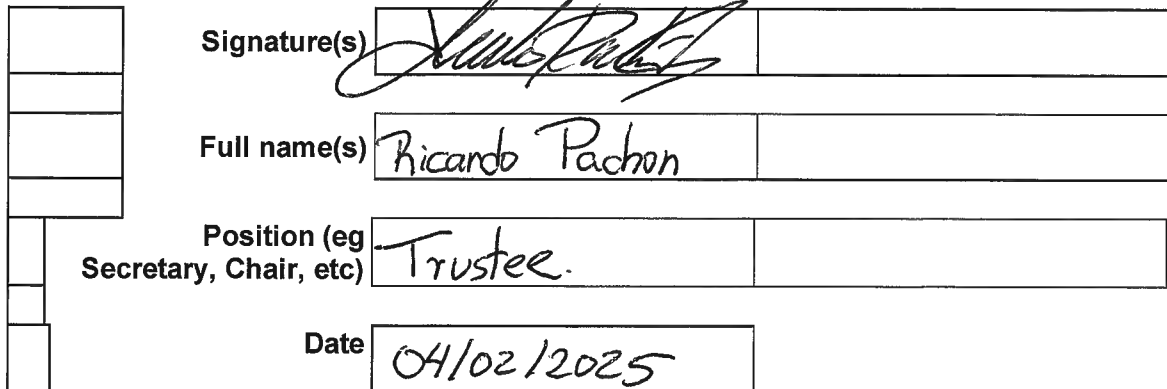 Signature(s)
Full name(s) Ricardo Pachon
Position (eg
Secretary, Chair, etc) Trustee.
Date 04/02/2025